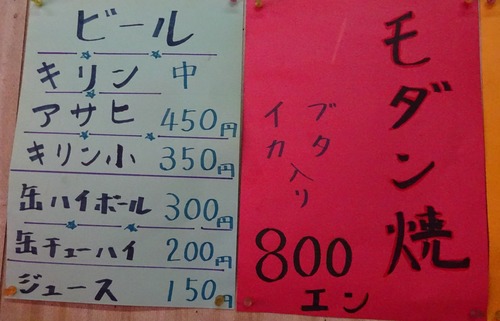 ビール
キリン 中
アサヒ 450円
キリン小 350円
缶ハイボール 300円
缶チューハイ 200円
ジュース 150円
モダン焼
ブタ
イカ入り
800
エン